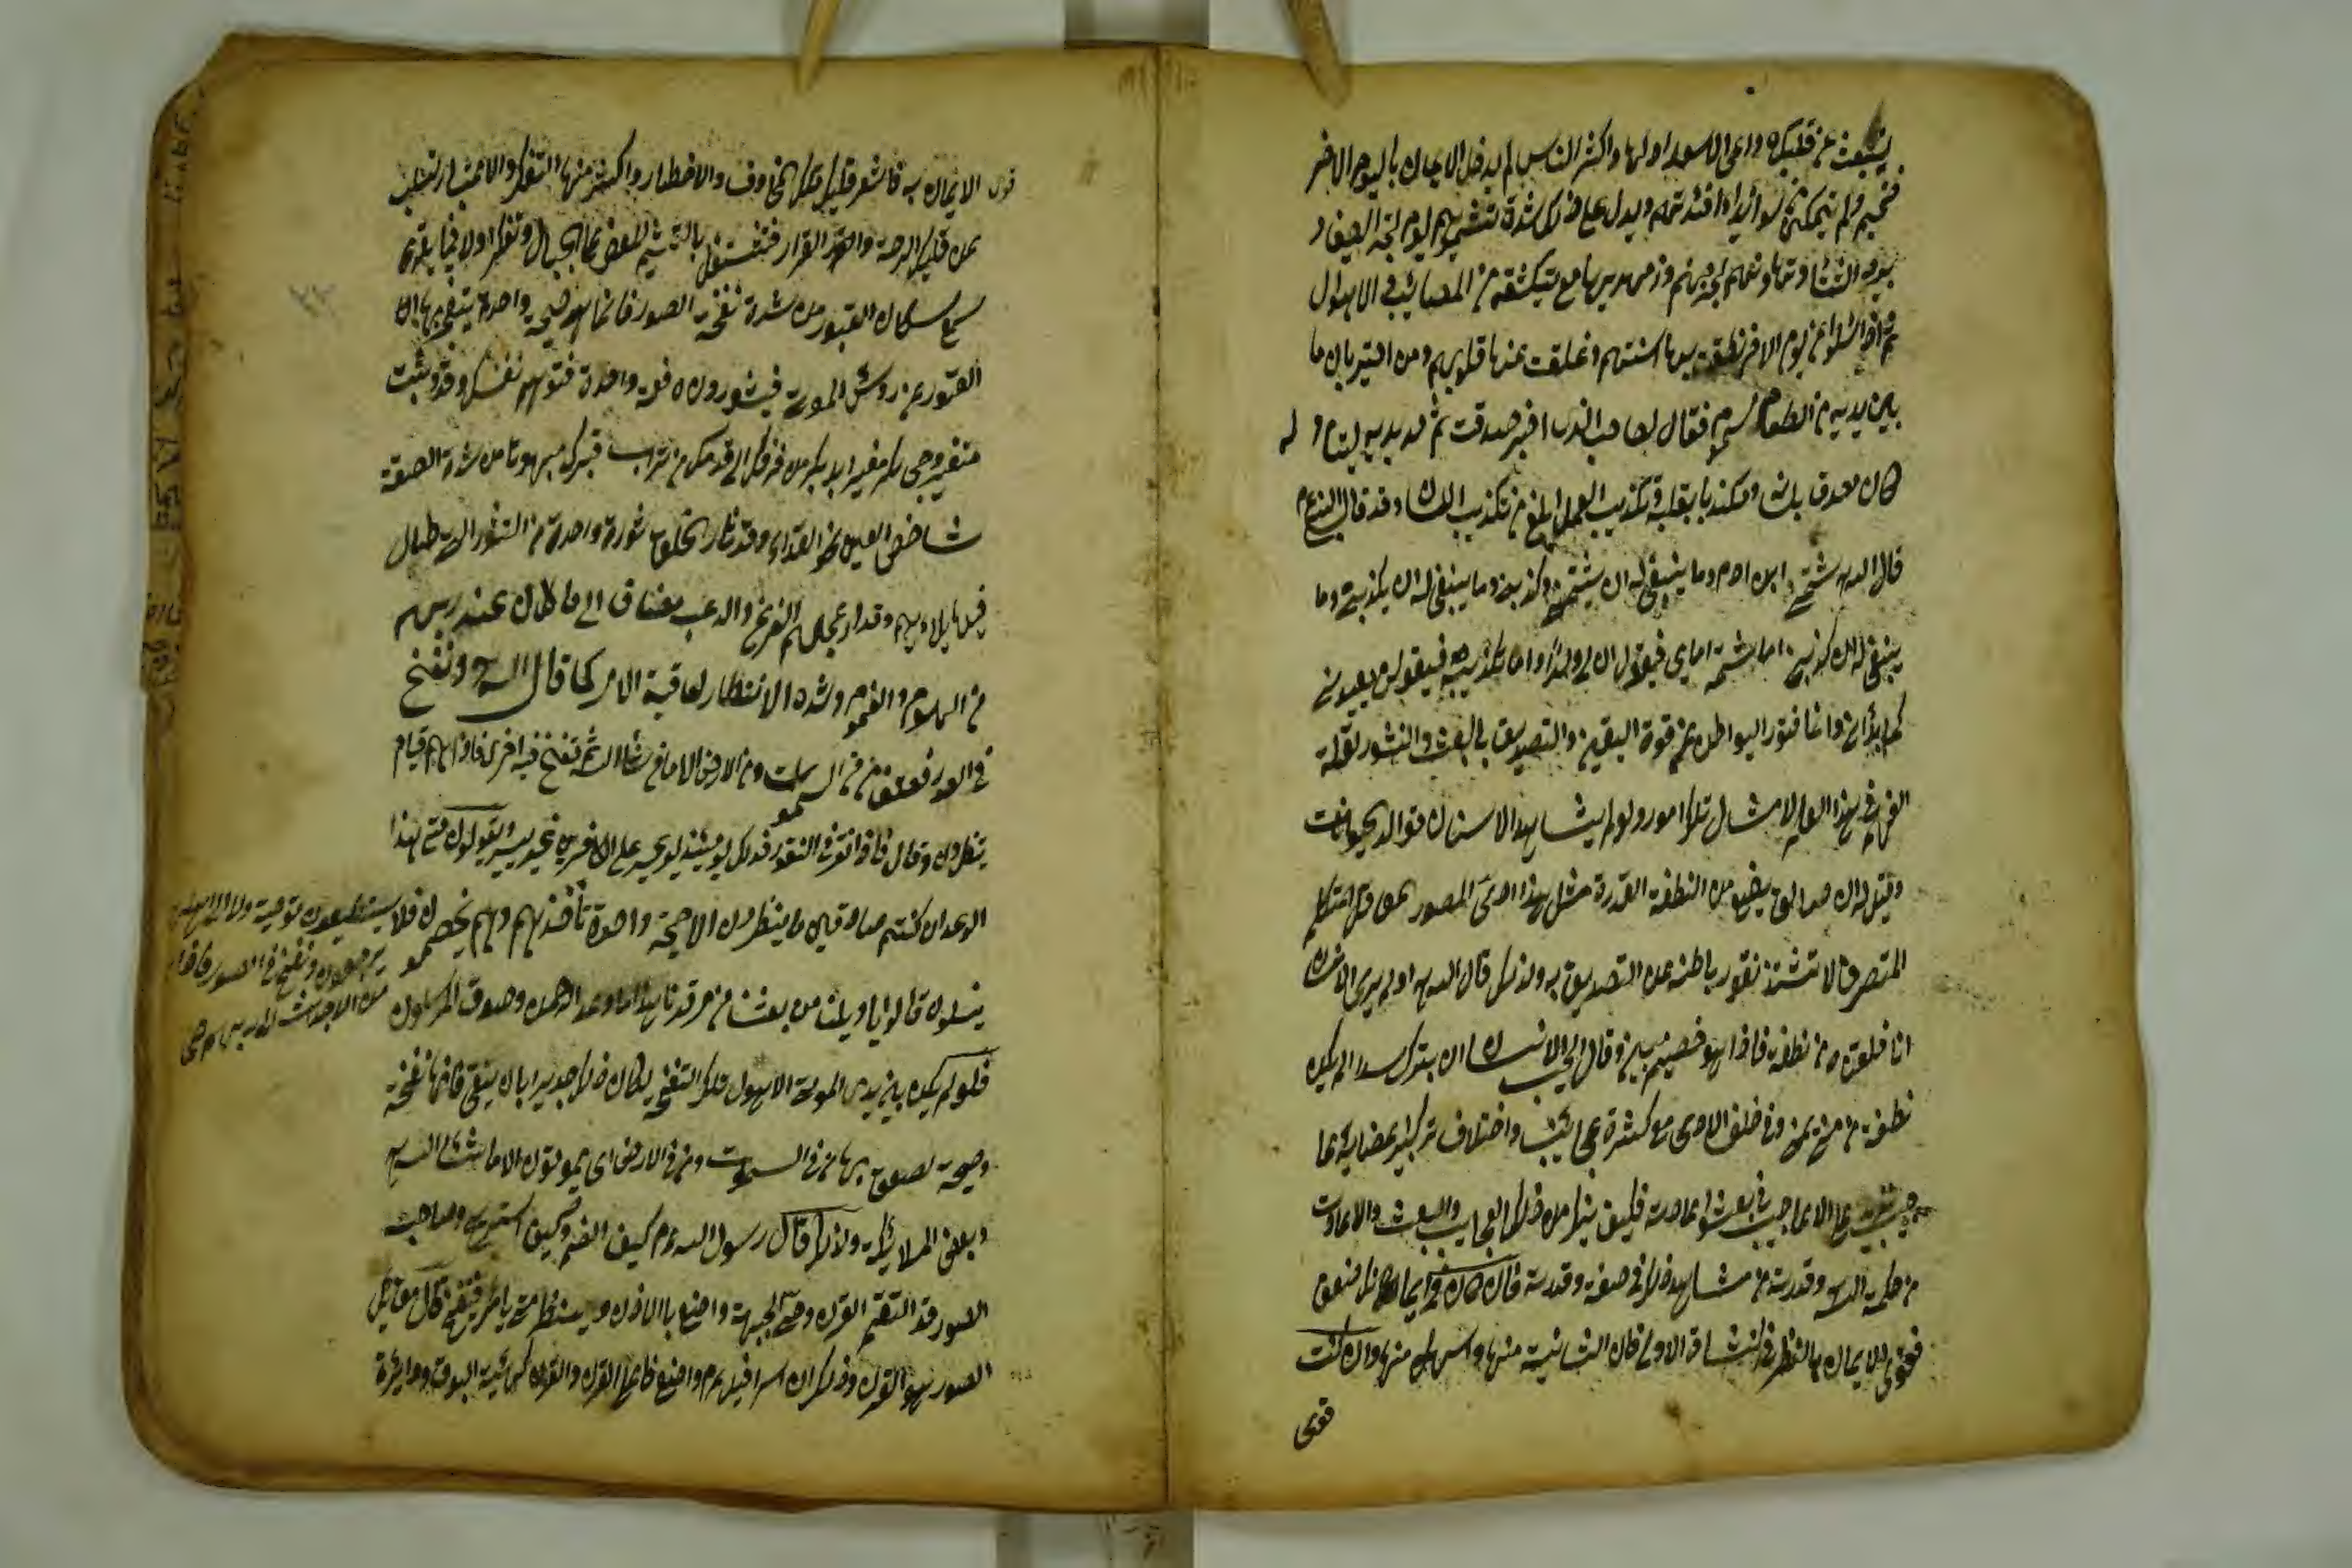 ينبعث من قلبك دواعى الاستعداد لها واكثر الناس لم يدخل الايمان باليوم الاخر
ولم يتمكن من سويداء افئدتهم ويدل على ذلك شدة تشمرهم لحر الصيف و
برد الشتاء وتهاونهم بحر جهنم وزمهريرها مع ما تكتنفه من المصايب والاهوال
بل اذا سئلوا عن يوم الاخر نطقت به السنتهم وغفلت عنها قلوبهم ومن اخبر بان ما
بين يديه من الطعام مسموم فقال لصاحبه الذى اخبر صدقت ثم مد يديه ليتناوله
كان مصدقا بلسانه ومكذبا بقلبه وتكذيب العمل ابلغ من تكذيب اللسان وقد قال النبى عم
قال الله شتمنى ابن ادم وما ينبغى له ان يشتمنى وكذبنى وما ينبغى له ان يكذبنى وما
ينبغى له ان يكذبنى اما شتمه اياى فيقول ان لى ولدا واما تكذيبه فيقول لن يعيدنى
كما بدأنى وانما فتور البواطن عن قوة اليقين والتصديق بالبعث والنشور لقلة
الفهم فى هذا العالم لامثال تلك امور ولو لم يشاهد الانسان توالد الحيوانات
وقيل له ان صانعا يصنع من النطفة القذرة مثل هذا الادمى المصور العاقل المتكلم
المتصرف لاشتد نفور باطنه عن التصديق به ولذلك قال الله اولم يرى الانسان
انا خلقناه من نطفة فاذا هو خصيم مبين وقال ايحسب الانسان ان يترك سدا الم يكن
نطفة من منى يمنى وفى خلق الادمى مع كثرة عجائبه واختلاف تركيب اعضائه
عجايب تزيد على الاعاجيب فى بعثه واعادته فكيف ينكر من ذلك العجايب والبعث والاعادة
من حكمة الله وقدرته من مشاهد ذلك فى صنعه وقدرته فان كان فى ايمانك ضعف
فقوى الايمان بالنظر فى النشاة الاولى فان الثانية مثلها واسهل منها وان كنت
قوى
قوى الايمان به فاشعر قلبك تلك المخاوف والاخطار واكثر منها التفكر والاعتبار لتسلب
عن قلبك الراحة والقرار فتشتغل بالتشمير للعرض على الجبار وتفكر اولا فيما يقرع
سمع سكان القبور من شدة نفخة الصور فانها صيحة واحدة ينفرج بها
القبور عن رؤس الموتى فيثورون دفعة واحدة فتوهم نفسك وقد وثبت
متغير وجهك مغبر ابدنك من فرقك الى قدمك من تراب قبرك مبهوتا من شدة الصعقة
شاخص العين نحو النداء وقد ثار الخلق ثورة واحدة من القبور التى طال
فيها بلاؤهم وقد ازعجهم الفزع والرعب مضاف الى ما كان عندهم
من الهموم والغموم وشدة الانتظار لعاقبة الامر كما قال الله ونفخ
فى الصور فصعق من فى السموات ومن فى الارض الا ما شاء الله ثم نفخ فيه اخرى فاذا هم قيام
ينظرون وقال فاذا نقر فى الناقور فذلك يومئذ يوم عسير على الكافرين غير يسير ويقولون متى هذا
الوعد ان كنتم صادقين ما ينظرون الا صيحة واحدة تأخذهم وهم يخصمون فلا يستطيعون توصية ولا الى اهلهم
يرجعون ونفخ فى الصور فاذا هم
من الاجداث الى ربهم
ينسلون قالوا يا ويلنا من بعثنا من مرقدنا هذا ما وعد الرحمن وصدق المرسلون
فلو لم يكن بين يدى الموتى الا هول تلك النفخة لكان ذلك جديرا بان يتقى فانها نفخة
وصيحة يصعق بها من فى السموات ومن فى الارض اى يموتون الا ما شاء الله
وبعض الملائكة ولذلك قال رسول الله عم كيف انعم وكيف استريح وصاحب
الصور قد التقم القرن وحنى الجبهة واصغى بالاذن وينتظر متى يامر فينفخ قال مقاتل
الصور هو القرن وذلك ان اسرافيل عم واضع فاه على القرن والقرن كهيئة البوق ودايرة